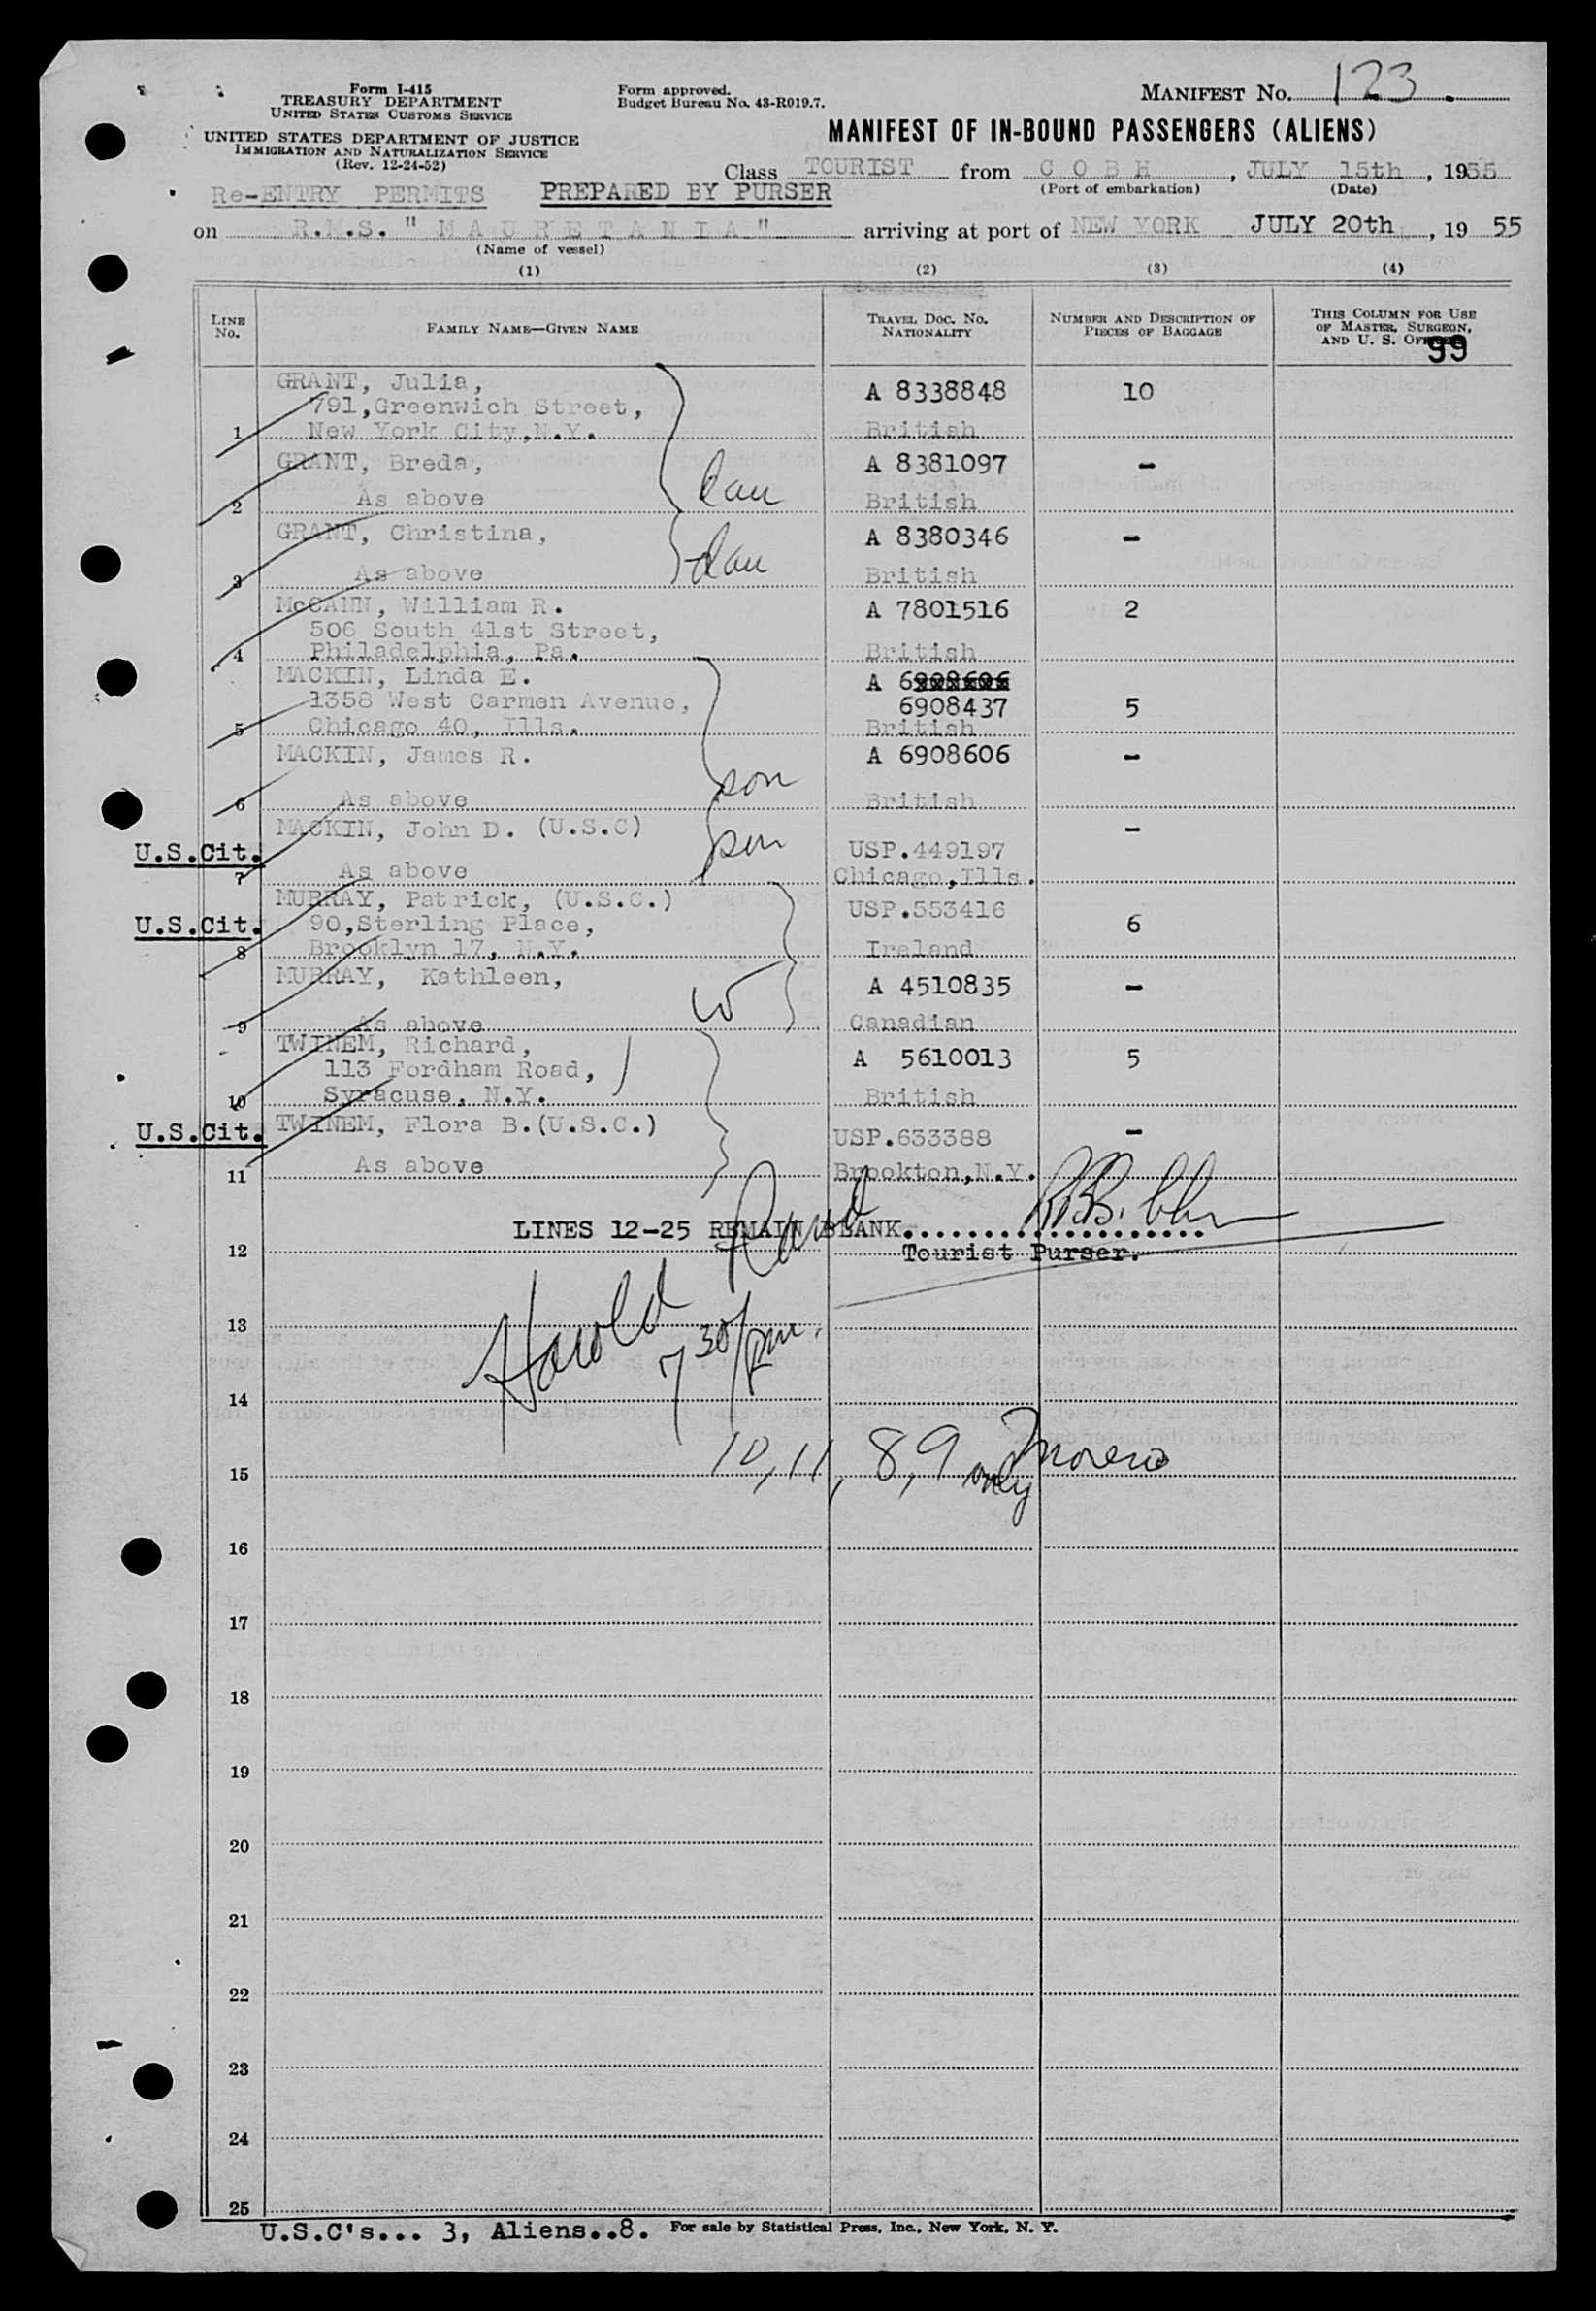 Form I-415
TREASURY DEPARTMENT
UNITED STATES CUSTOMS SERVICE
UNITED STATES DEPARTMENT OF JUSTICE
IMMIGRATION AND NATURALIZATION SERVICE
(Rev. 12-24-52)
Form approved.
Budget Bureau No. 43-R019.7.
MANIFEST NO. 123.
MANIFEST OF IN-BOUND PASSENGERS (ALIENS)
Class TOURIST from C O B H, JULY 15th, 1955
(Port of embarkation) (Date)
Re-ENTRY PERMITS PREPARED BY PURSER
on R.M.S. " M A U R E T A N I A " arriving at port of NEW YORK JULY 20th, 19 55
(Name of vessel)
(1) (2) (3) (4)
LINE No. FAMILY NAME—GIVEN NAME TRAVEL DOC. NO. NATIONALITY NUMBER AND DESCRIPTION OF PIECES OF BAGGAGE THIS COLUMN FOR USE OF MASTER, SURGEON, AND U. S. OFFICERS
99
GRANT, Julia, A 8338848 10
791,Greenwich Street,
1 New York City,N.Y. British
GRANT, Breda, A 8381097 -
dau
2 As above British
GRANT, Christina, A 8380346 -
dau
3 As above British
McCANN, William R. A 7801516 2
506 South 41st Street,
4 Philadelphia, Pa. British
MACKIN, Linda E. A 6908606
1358 West Carmen Avenue, 6908437 5
5 Chicago 40, Ills. British
MACKIN, James R. A 6908606 -
son
6 As above British
MACKIN, John D. (U.S.C) -
U.S.Cit. son USP.449197
7 As above Chicago,Ills.
MURRAY, Patrick, (U.S.C.) USP.553416
U.S.Cit. 90,Sterling Place, 6
8 Brooklyn 17, N.Y. Ireland
MURRAY, Kathleen, A 4510835 -
W
9 As above Canadian
TWINEM, Richard, A 5610013 5
113 Fordham Road,
10 Syracuse, N.Y. British
U.S.Cit. TWINEM, Flora B.(U.S.C.) USP.633388 -
11 As above Brookton,N.Y.
LINES 12-25 REMAIN BLANK...................
12 Tourist Purser.
Harold Rand
13
7 30/pm.
14
10, 11, 8, 9 only Moreno
15
16
17
18
19
20
21
22
23
24
25
U.S.C's... 3, Aliens..8. For sale by Statistical Press, Inc., New York, N. Y.